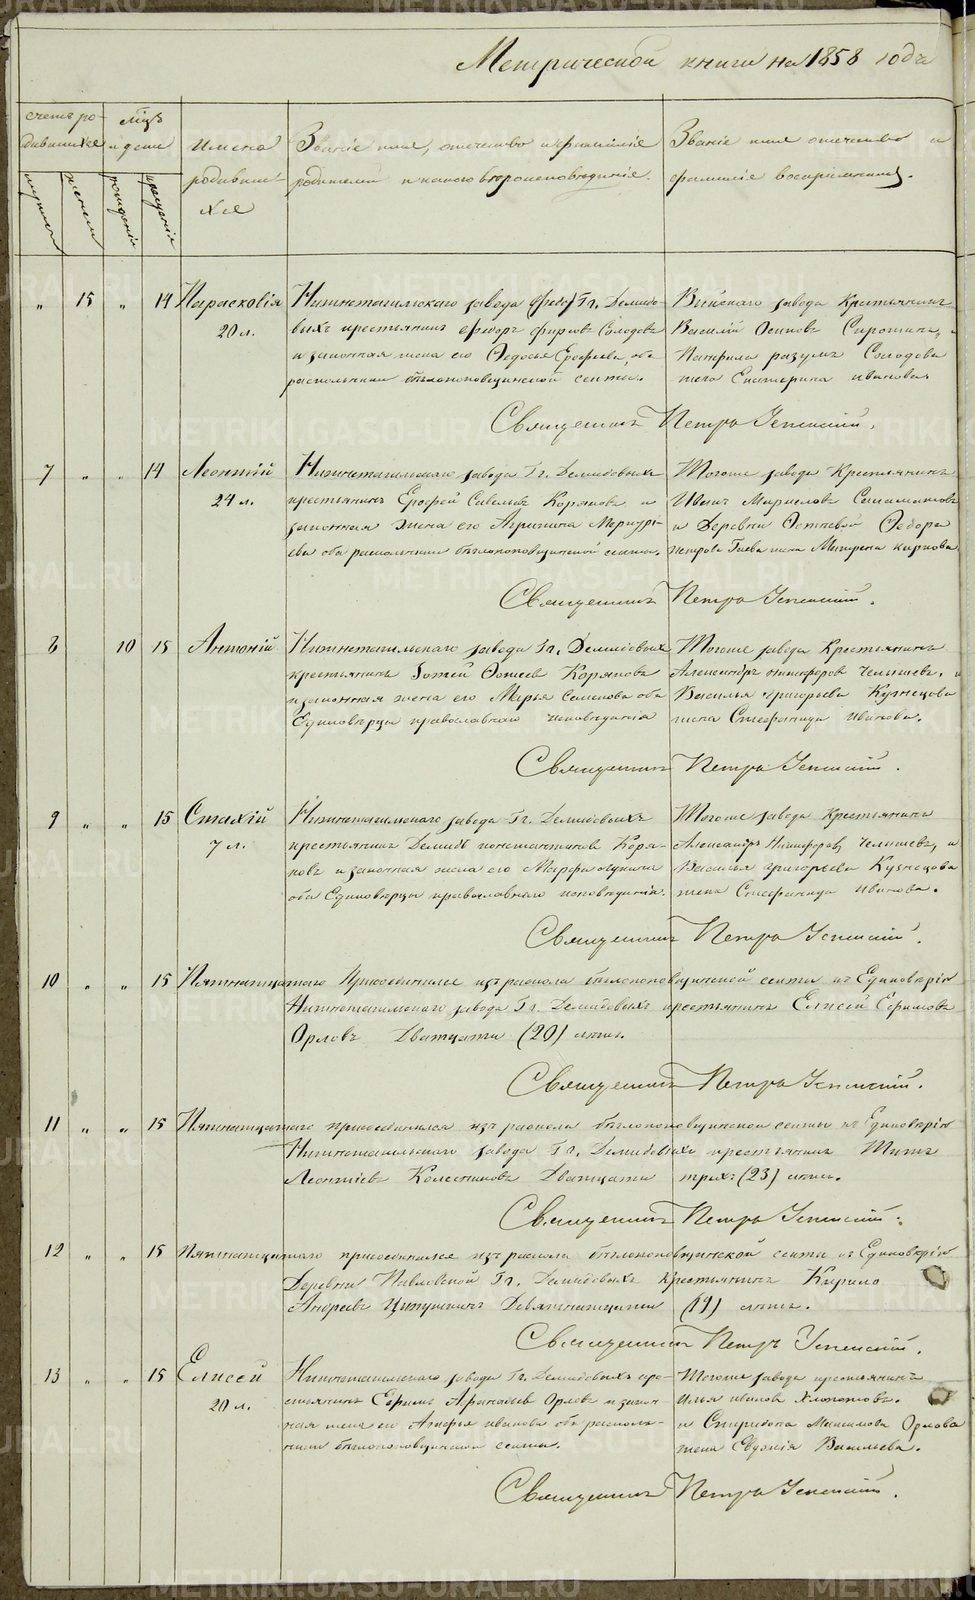 Метрической книги на 1858 годъ
счетъ ро-
дившихся
мѣсяцъ
и день
Имена
родивши-
хся
Званіе имя, отчество и фамилія
родителей и какого вѣроисповѣданія.
Званіе имя отчество и
фамилія воспріемниковъ.
мужска
женска
рожденія
крещенія
" 15 " 14 Парасковія
20 л.
Нижнетагильскаго завода Гг. Демидо-
выхъ крестьянинъ Ѳедоръ Фирсовъ Солодовъ
и законная жена его Ѳедосья Ерофѣева, оба
раскольники бѣглопоповщинской секты.
Выйскаго завода Крестьянинъ
Василій Осиповъ Сиротинъ, и
Солодова
жена Екатерина иванова
Священникъ Петръ Успенскій.
7 " " 14 Леонтій
24 л.
Нижнетагильскаго завода Гг. Демидовыхъ
крестьянинъ Ерофей Савельевъ Коряковъ и
законная жена его Агрипина Меркурі-
ева оба раскольники бѣглопоповщинской секты.
Тогоже завода Крестьянинъ
Иванъ
и Деревни Ѳедора
петрова Гаева жена Матрена карпова
Священникъ Петръ Успенскій.
8 10 15 Антоній
Нижнетагильскаго завода Гг. Демидовыхъ
крестьянинъ Коряковъ
и законная жена его Марья Семенова оба
Единовѣрцы православнаго исповѣданія
Тогоже завода Крестьянинъ
Александръ никифоровъ Челышевъ, и
Василья григорьева Кузнецова
жена Стефанида Иванова.
Священникъ Петръ Успенскій.
9 " " 15 Стахій
7 л.
Нижнетагильскаго завода Гг. Демидовыхъ
крестьянинъ Демидъ константиновъ Коря-
ковъ и законная жена его Марфа лукина
оба Единовѣрцы православнаго исповѣданія.
Тогоже завода Крестьянинъ
Александръ Никифоровъ Челышевъ, и
Василья григорьева Кузнецова
жена Стефанида Иванова.
Священникъ Петръ Успенскій.
10 " " 15 Пятнатцатаго Присоединился изъ раскола бѣглопоповщинской секты къ Единовѣрію
Нижнетагильскаго завода Гг. Демидовыхъ крестьянинъ Елисей Ефимовъ
Орловъ Дватцати (20) лѣтъ.
Священникъ Петръ Успенскій.
11 " " 15 Пятнатцатаго присоединился изъ раскола бѣглопоповщинской секты къ Единовѣрію
Нижнетагильскаго завода Гг. Демидовыхъ крестьянинъ Титъ
Леонтіевъ Колесниковъ Дватцати трехъ (23) лѣтъ.
Священникъ Петръ Успенскій.
12 " " 15 Пятнатцатаго присоединился изъ раскола бѣглопоповщинской секты къ Единовѣрію
Деревни Павловской Гг. Демидовыхъ крестьянинъ Кирило
Андреевъ Девятнатцати (19) лѣтъ.
Священникъ Петръ Успенскій.
13 " " 15 Елисей
20 л.
Нижнетагильскаго завода Гг. Демидовыхъ кре-
стьянинъ Ефимъ Афанасьевъ Орловъ и закон-
ная жена его Агафья иванова оба расколь-
ники бѣглопоповщинской секты.
Тогоже завода крестьянинъ
Илья ивановъ Хлопотовъ.
и Спиридона Максимова Орлова
жена Евдокія Васильева.
Священникъ Петръ Успенскій.
METRIKI.GASO-URAL.RU